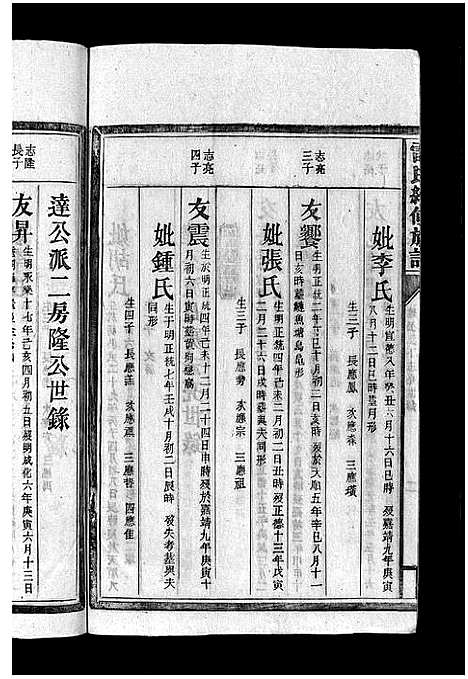 雷氏續修族譜
妣李氏
生明宣德八年癸丑六月十六日巳時 歿嘉靖九年庚寅
八月十二日巳時墓同形
生三子 長應鳳 次應森 三應璜
志亮
三子
友饗
生明正統二年丁巳十月初二日亥時歿於天順五年辛巳八月十一
日亥時葬鯉魚塘烏龜形
妣張氏
生明正統四年己未三月初二日丑時歿正德十三年戊寅
二月二十六日戌時墓與夫同形
生三子 長應勞 次應宗 三應祖
志亮
四子
友震
生於明正統四年己未十二月二十四日申時歿於嘉靖九年庚寅十
月初六日寅時葬黃狗應窩
妣鍾氏
生于明正統七年壬戌十月初二日辰時 歿失考墓與夫
同形
生四子 長應謹 次應禀 三應督 四應佳
達公派二房隆公世錄
志隆
長子
友昇
生明永樂十七年己亥四月初五日寅明成化六年庚寅六月十三日